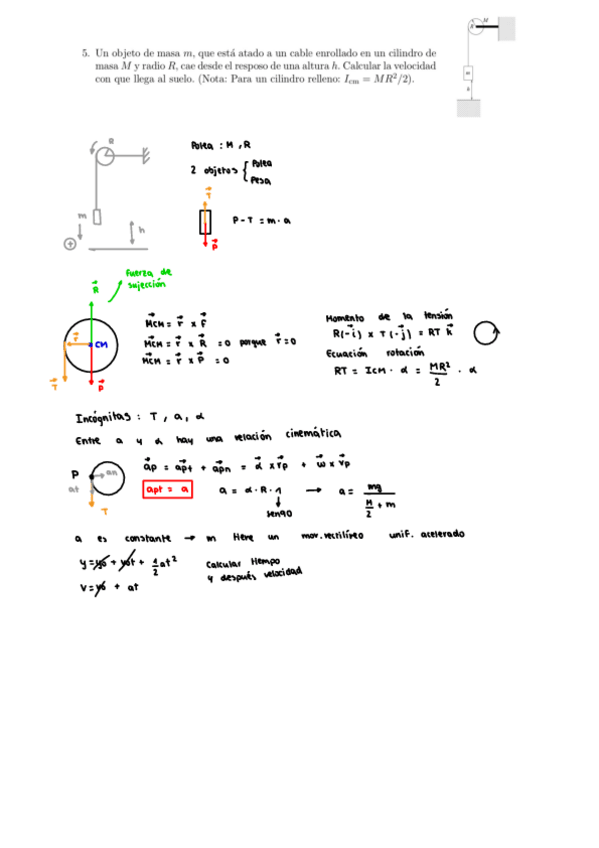 5. Un objeto de masa m, que está atado a un cable enrollado en un cilindro de
masa M y radio R, cae desde el resposo de una altura h. Calcular la velocidad
con que llega al suelo. (Nota: Para un cilindro relleno: I_cm = MR²/2).
M
R
m
h
R
m
h
+
Polea : M , R
2 objetos { Polea
Pesa
T
P - T = m · a
P
Fuerza de
sujección
R
r
CM
T
P
M_CM = r x F
M_CM = r x R = 0 porque r = 0
M_CM = r x P = 0
Momento de la tensión
R(-i) x T(-j) = RT k
Ecuación rotación
RT = I_CM · α = MR²/2 · α
Incógnitas : T , a , α
Entre a y α hay una relación cinemática
P
at
an
T
ap = apt + apn = α x rp + ω x vp
apt = a
a = α · R · 1 → a = mg / (M/2 + m)
sen90
a es constante → m tiene un mov. rectilíneo unif. acelerado
y = y0 + v0t + 1/2 at²
v = v0 + at
Calcular tiempo
y después velocidad